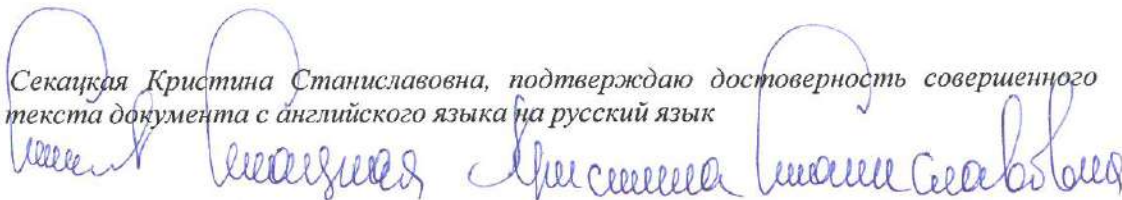 Секацкая Кристина Станиславовна, подтверждаю достоверность совершенного
текста документа с английского языка на русский язык
Секацкая Кристина Станиславовна